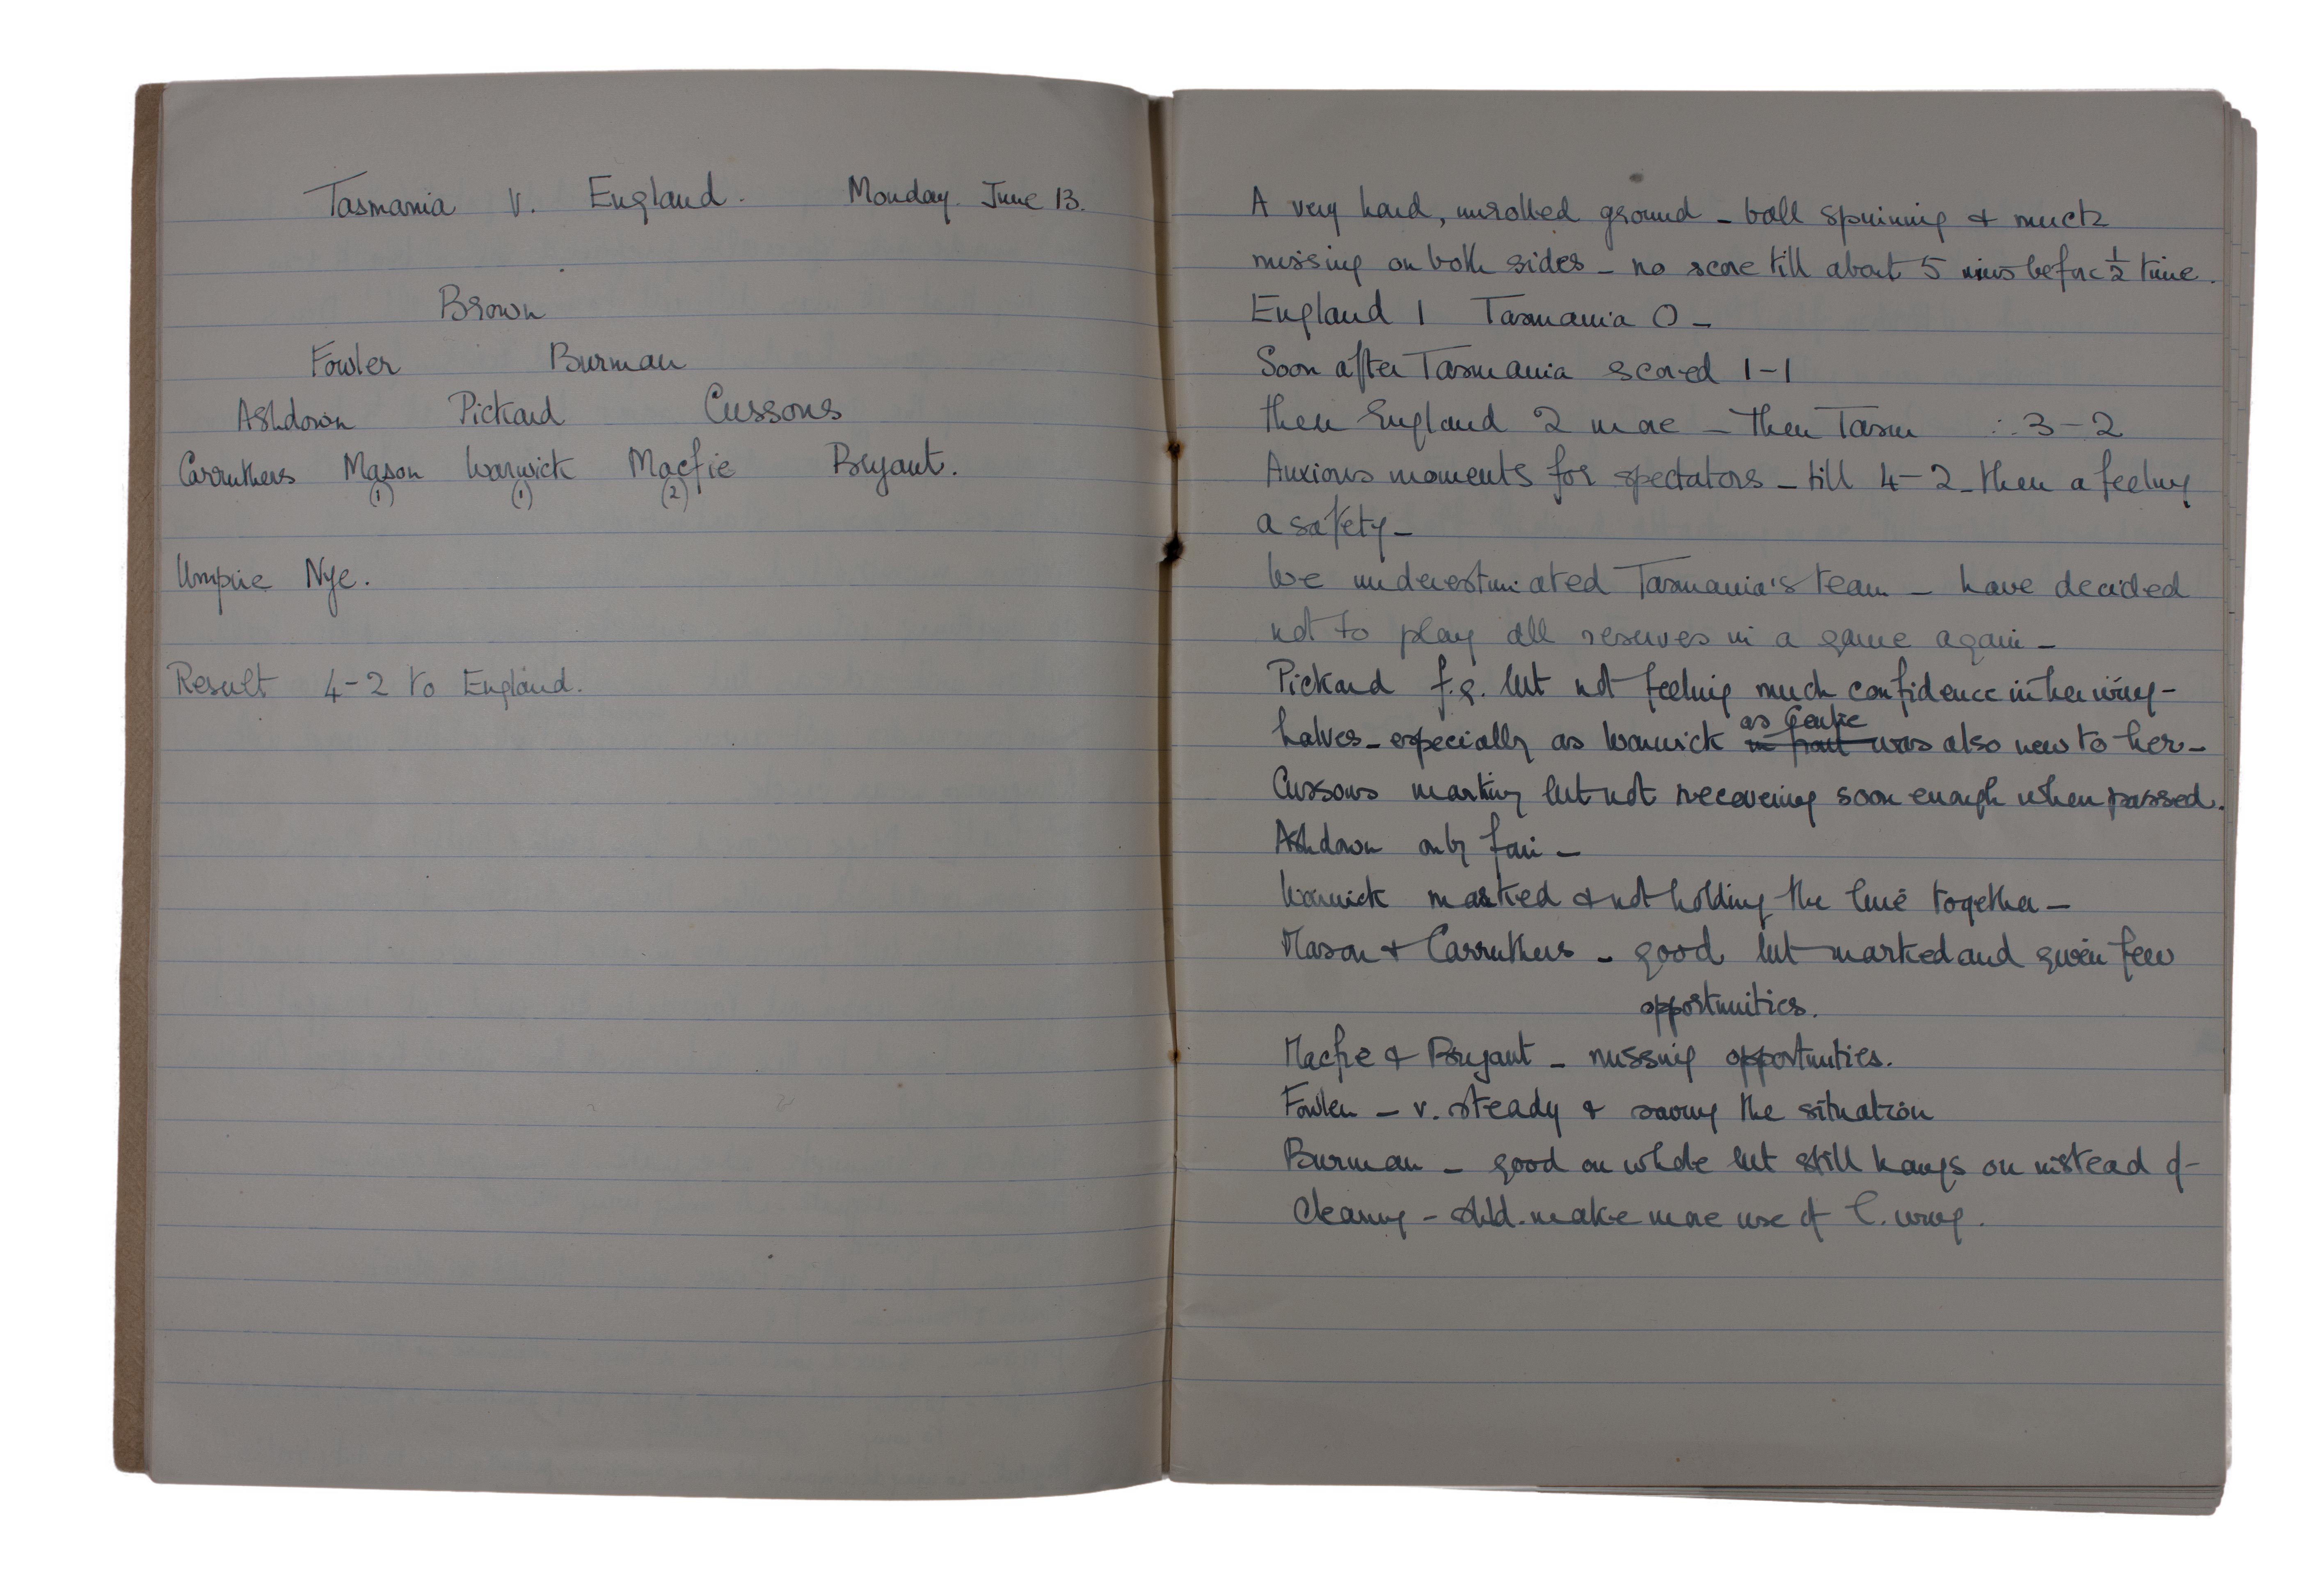 Tasmania v. England. Monday June 13.
Brown
Fowler Burman
Ashdown Pickard Cussons
Carruthers Mason Warwick Macfie Bryant.
(1) (1) (2)
Umpire Nye.
Result 4-2 to England.
A very hard, unrolled ground - ball spinning & much
missing on both sides - no score till about 5 mins before ½ time.
England 1 Tasmania 0 -
Soon after Tasmania scored 1-1
then England 2 more - then Tasm ∴ 3-2
Anxious moments for spectators - till 4-2 - then a feeling
a safety -
We underestimated Tasmania's team - have decided
not to play all reserves in a game again -
Pickard f.g. but not feeling much confidence in her wing-
as Centre
halves - especially as Warwick in front was also new to her -
Cussons marking but not recovering soon enough when passed.
Ashdown only fair -
Warwick marked & not holding the line together -
Mason & Carruthers - good but marked and given few
opportunities.
Macfie & Bryant - missing opportunities.
Fowler - v. steady & saving the situation
Burman - good on whole but still hangs on instead of
clearing - shld. make more use of l. wing.